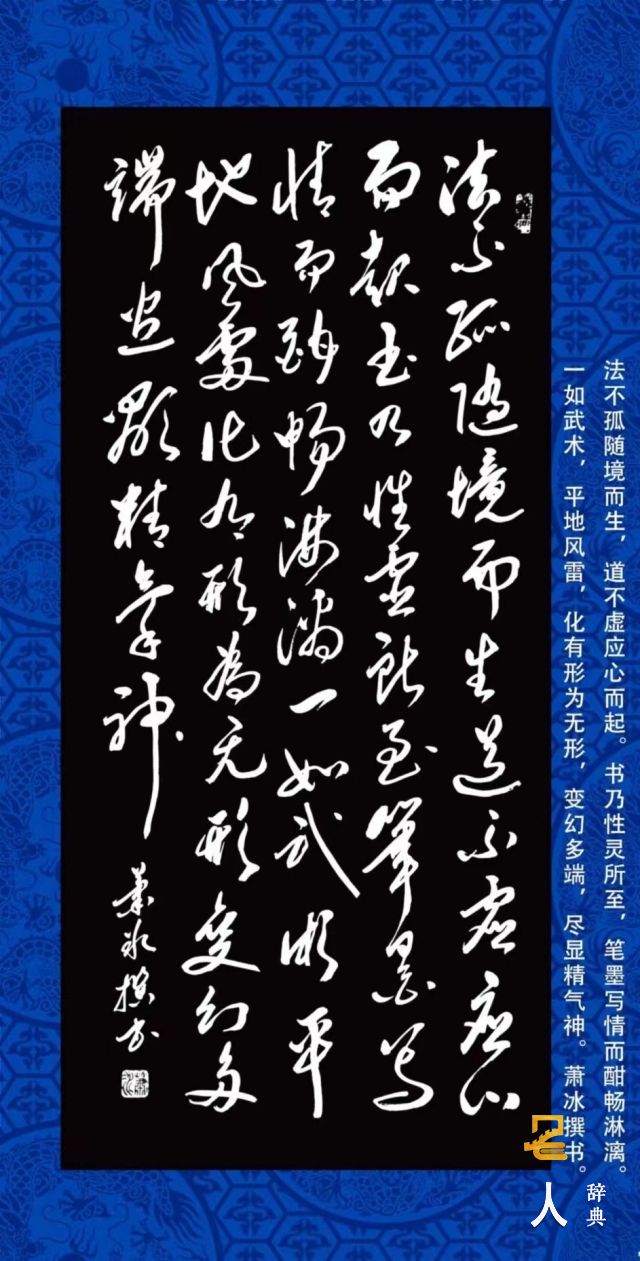 法不孤随境而生道不虚应心
而起书乃性灵所至笔墨写
情而酣畅淋漓一如武术平
地风雷化有形为无形变幻多
端尽显精气神
萧冰撰书
法不孤随境而生，道不虚应心而起。书乃性灵所至，笔墨写情而酣畅淋漓。
一如武术，平地风雷，化有形为无形，变幻多端，尽显精气神。萧冰撰书。
人
辞典